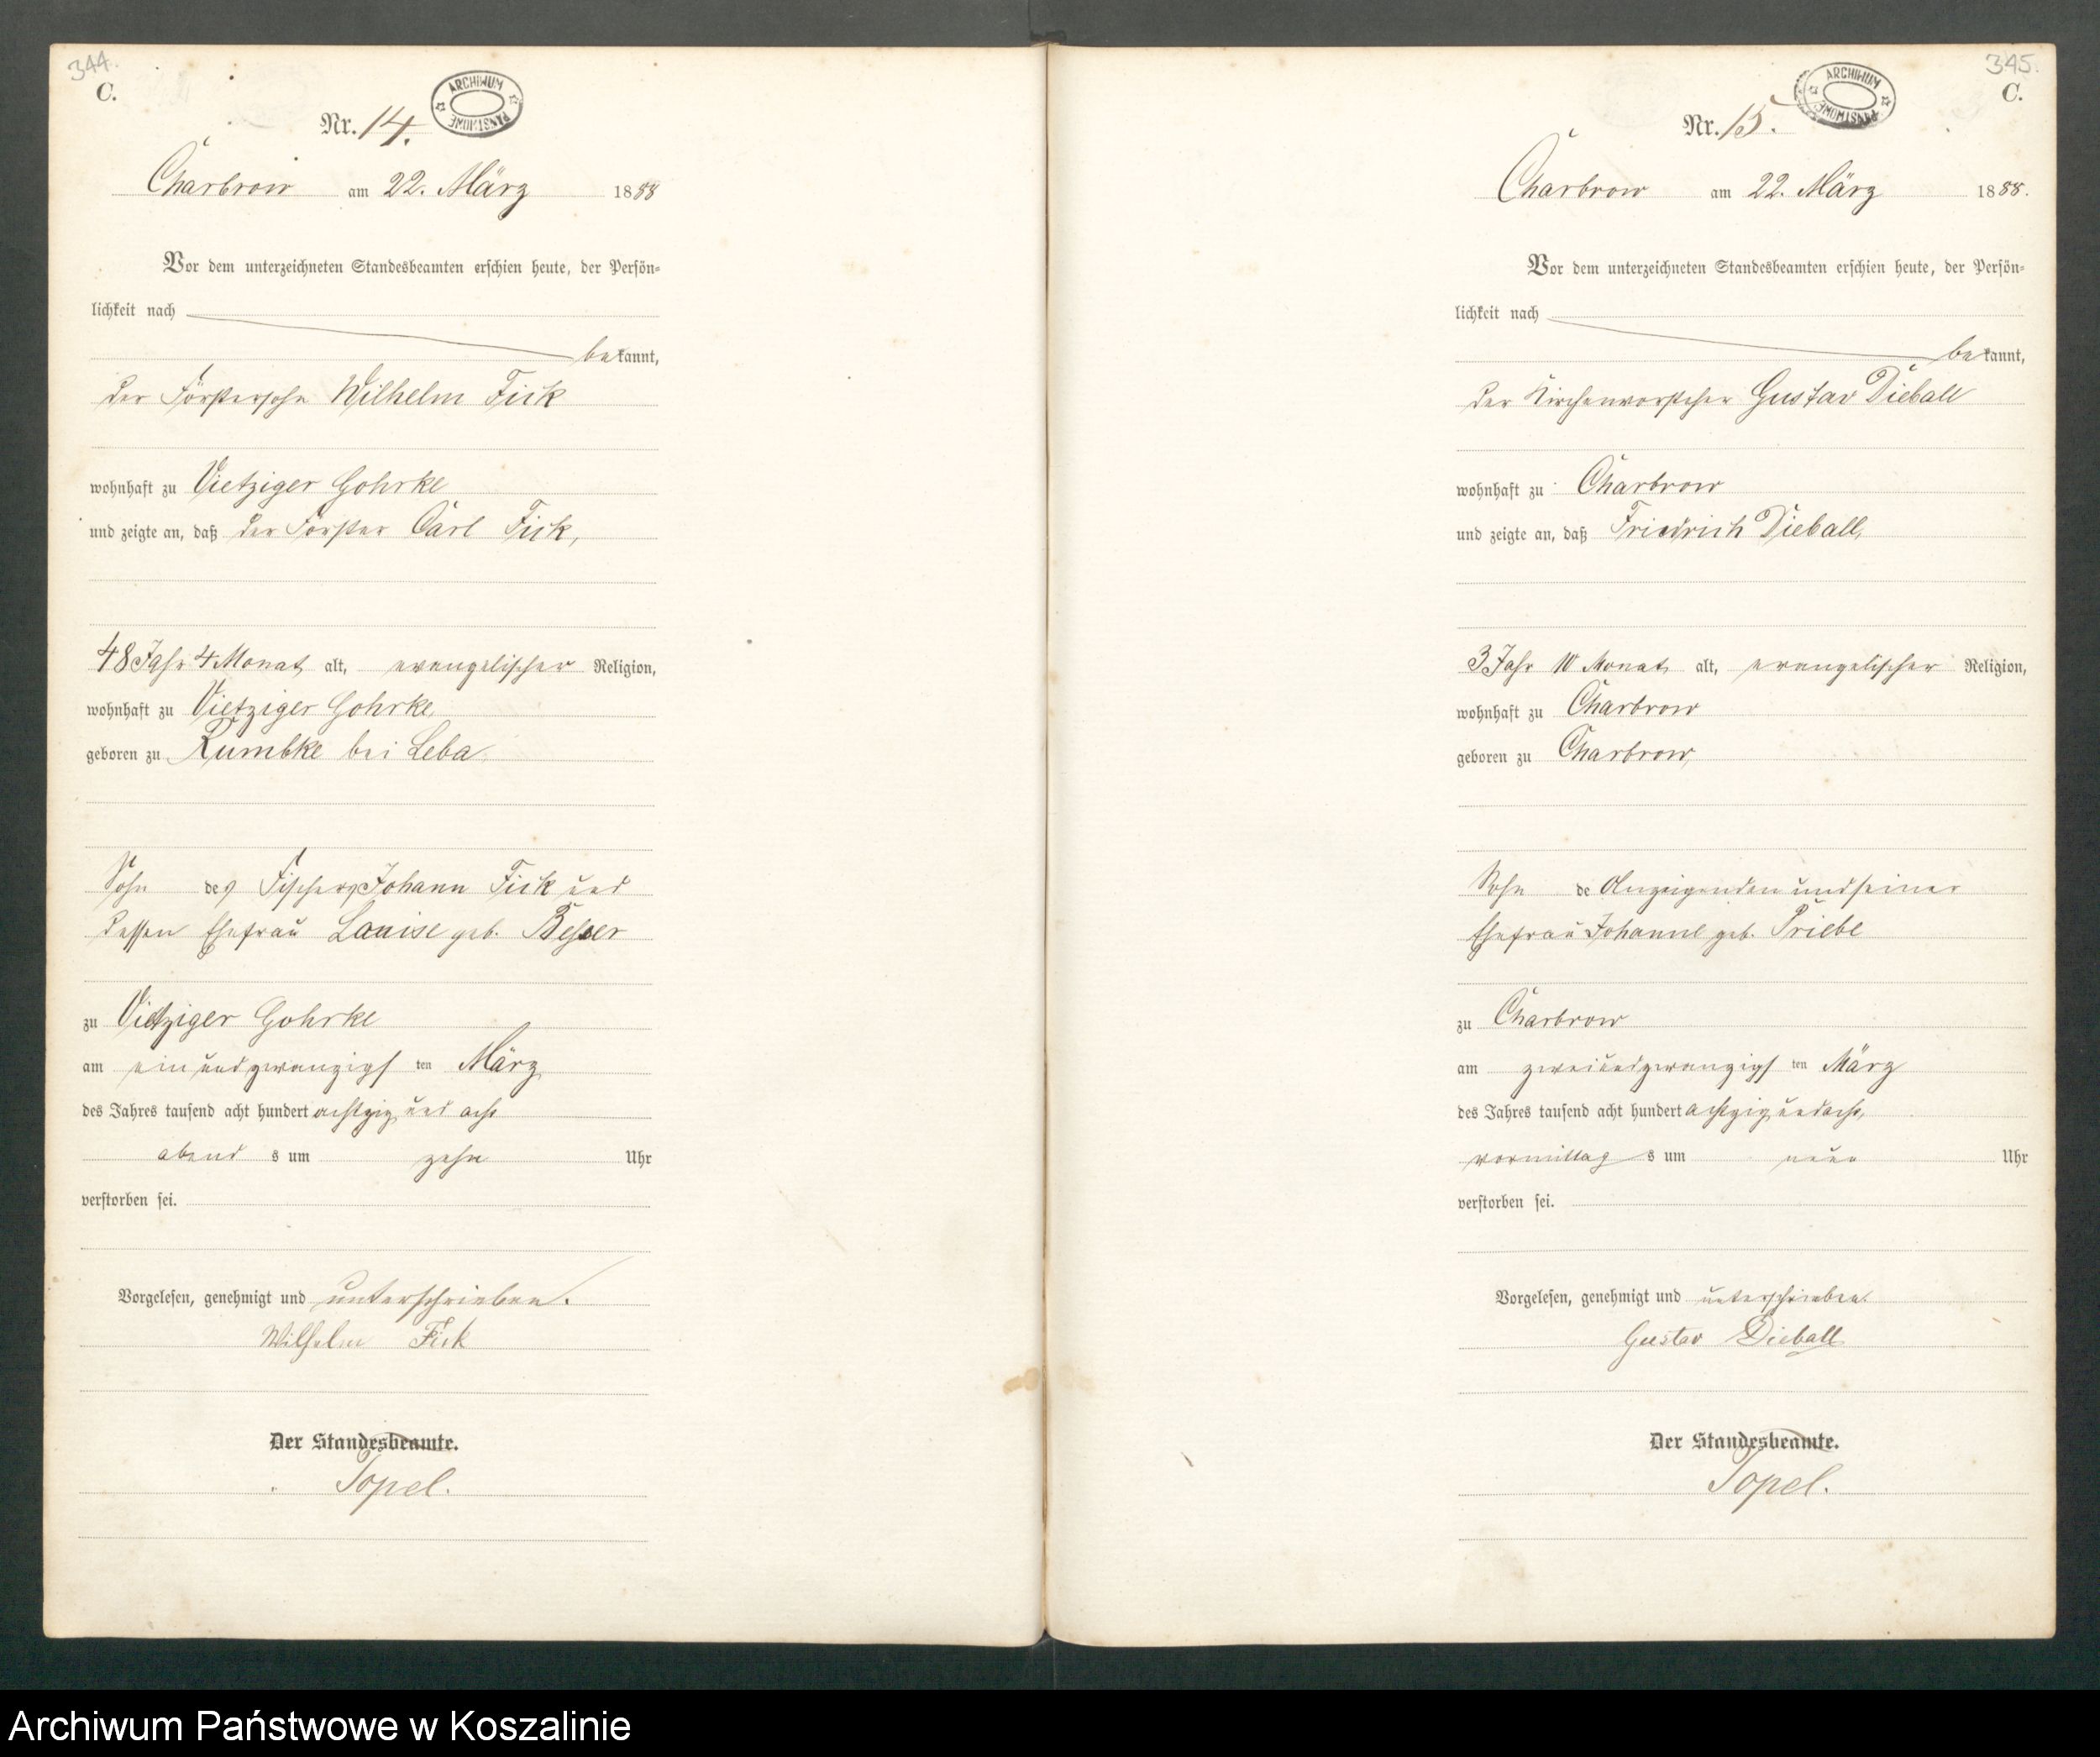 344.
C.
ARCHIWUM PAŃSTWOWE
Nr. 14.
Charbrow am 22. März 1888
Vor dem unterzeichneten Standesbeamten erschien heute, der Persön-
lichkeit nach
bekannt,
der Förstersohn Wilhelm Fick
wohnhaft zu Vietziger Gohrke
und zeigte an, daß der Förster Carl Fick,
48 Jahr 4 Monat alt, evangelischer Religion,
wohnhaft zu Vietziger Gohrke,
geboren zu Rumbke bei Leba,
Sohn des Fischers Johann Fick und
dessen Ehefrau Louise geb.
zu Vietziger Gohrke
am einundzwanzigsten März
des Jahres tausend acht hundert achtzig und acht
abends um zehn Uhr
verstorben sei.
Vorgelesen, genehmigt und unterschrieben.
Wilhelm Fick
Der Standesbeamte.
Topel.
345.
C.
ARCHIWUM PAŃSTWOWE
Nr. 15.
Charbrow am 22. März 1888.
Vor dem unterzeichneten Standesbeamten erschien heute, der Persön-
lichkeit nach
bekannt,
der Kirchenvorsteher Gustav Dieball
wohnhaft zu Charbrow
und zeigte an, daß Friedrich Dieball,
3 Jahr 10 Monat alt, evangelischer Religion,
wohnhaft zu Charbrow
geboren zu Charbrow,
Sohn de Anzeigenden und seiner
Ehefrau Johanne geb. Priebe
zu Charbrow
am zweiundzwanzigsten März
des Jahres tausend acht hundert achtzig und acht,
vormittags um neun Uhr
verstorben sei.
Vorgelesen, genehmigt und unterschrieben.
Gustav Dieball
Der Standesbeamte.
Topel.
Archiwum Państwowe w Koszalinie